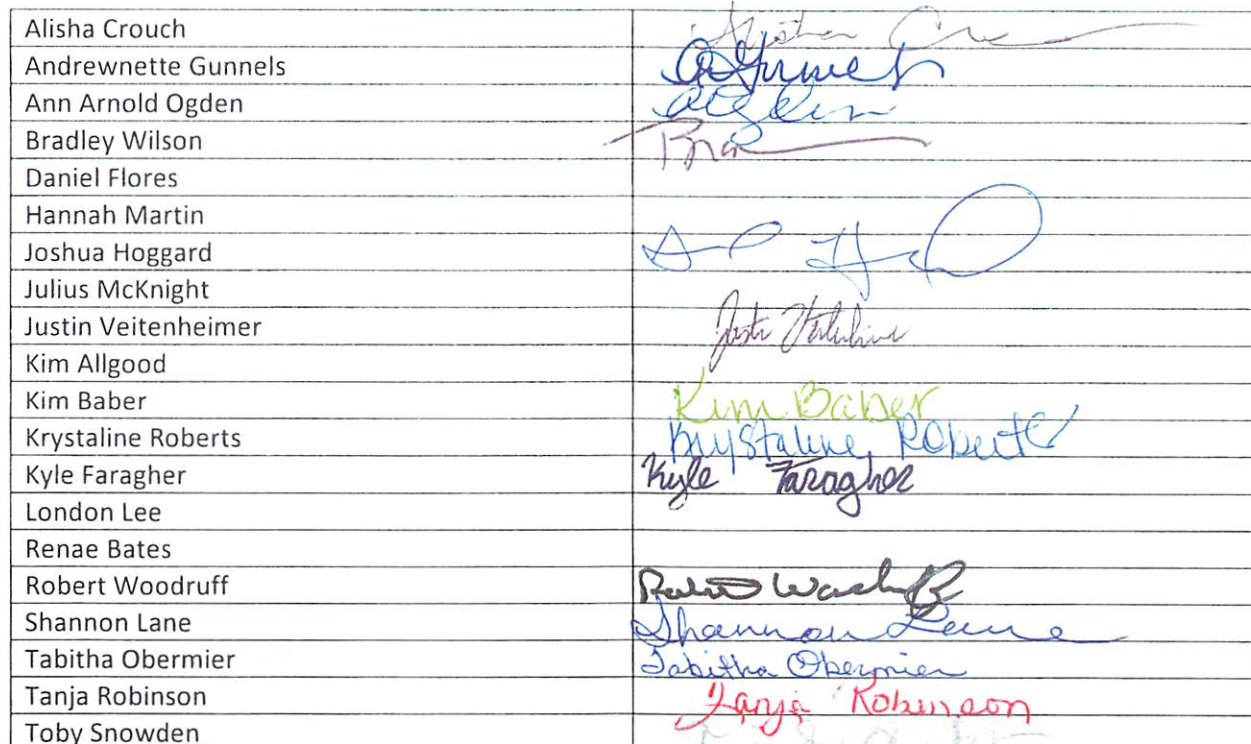 Alisha Crouch Alisha
Andrewnette Gunnels
Ann Arnold Ogden
Bradley Wilson
Daniel Flores
Hannah Martin
Joshua Hoggard
Julius McKnight
Justin Veitenheimer
Kim Allgood
Kim Baber Kim Baber
Krystaline Roberts Krystaline Roberts
Kyle Faragher Kyle Faragher
London Lee
Renae Bates
Robert Woodruff
Shannon Lane Shannon Lane
Tabitha Obermier Tabitha Obermier
Tanja Robinson Tanja Robinson
Toby Snowden